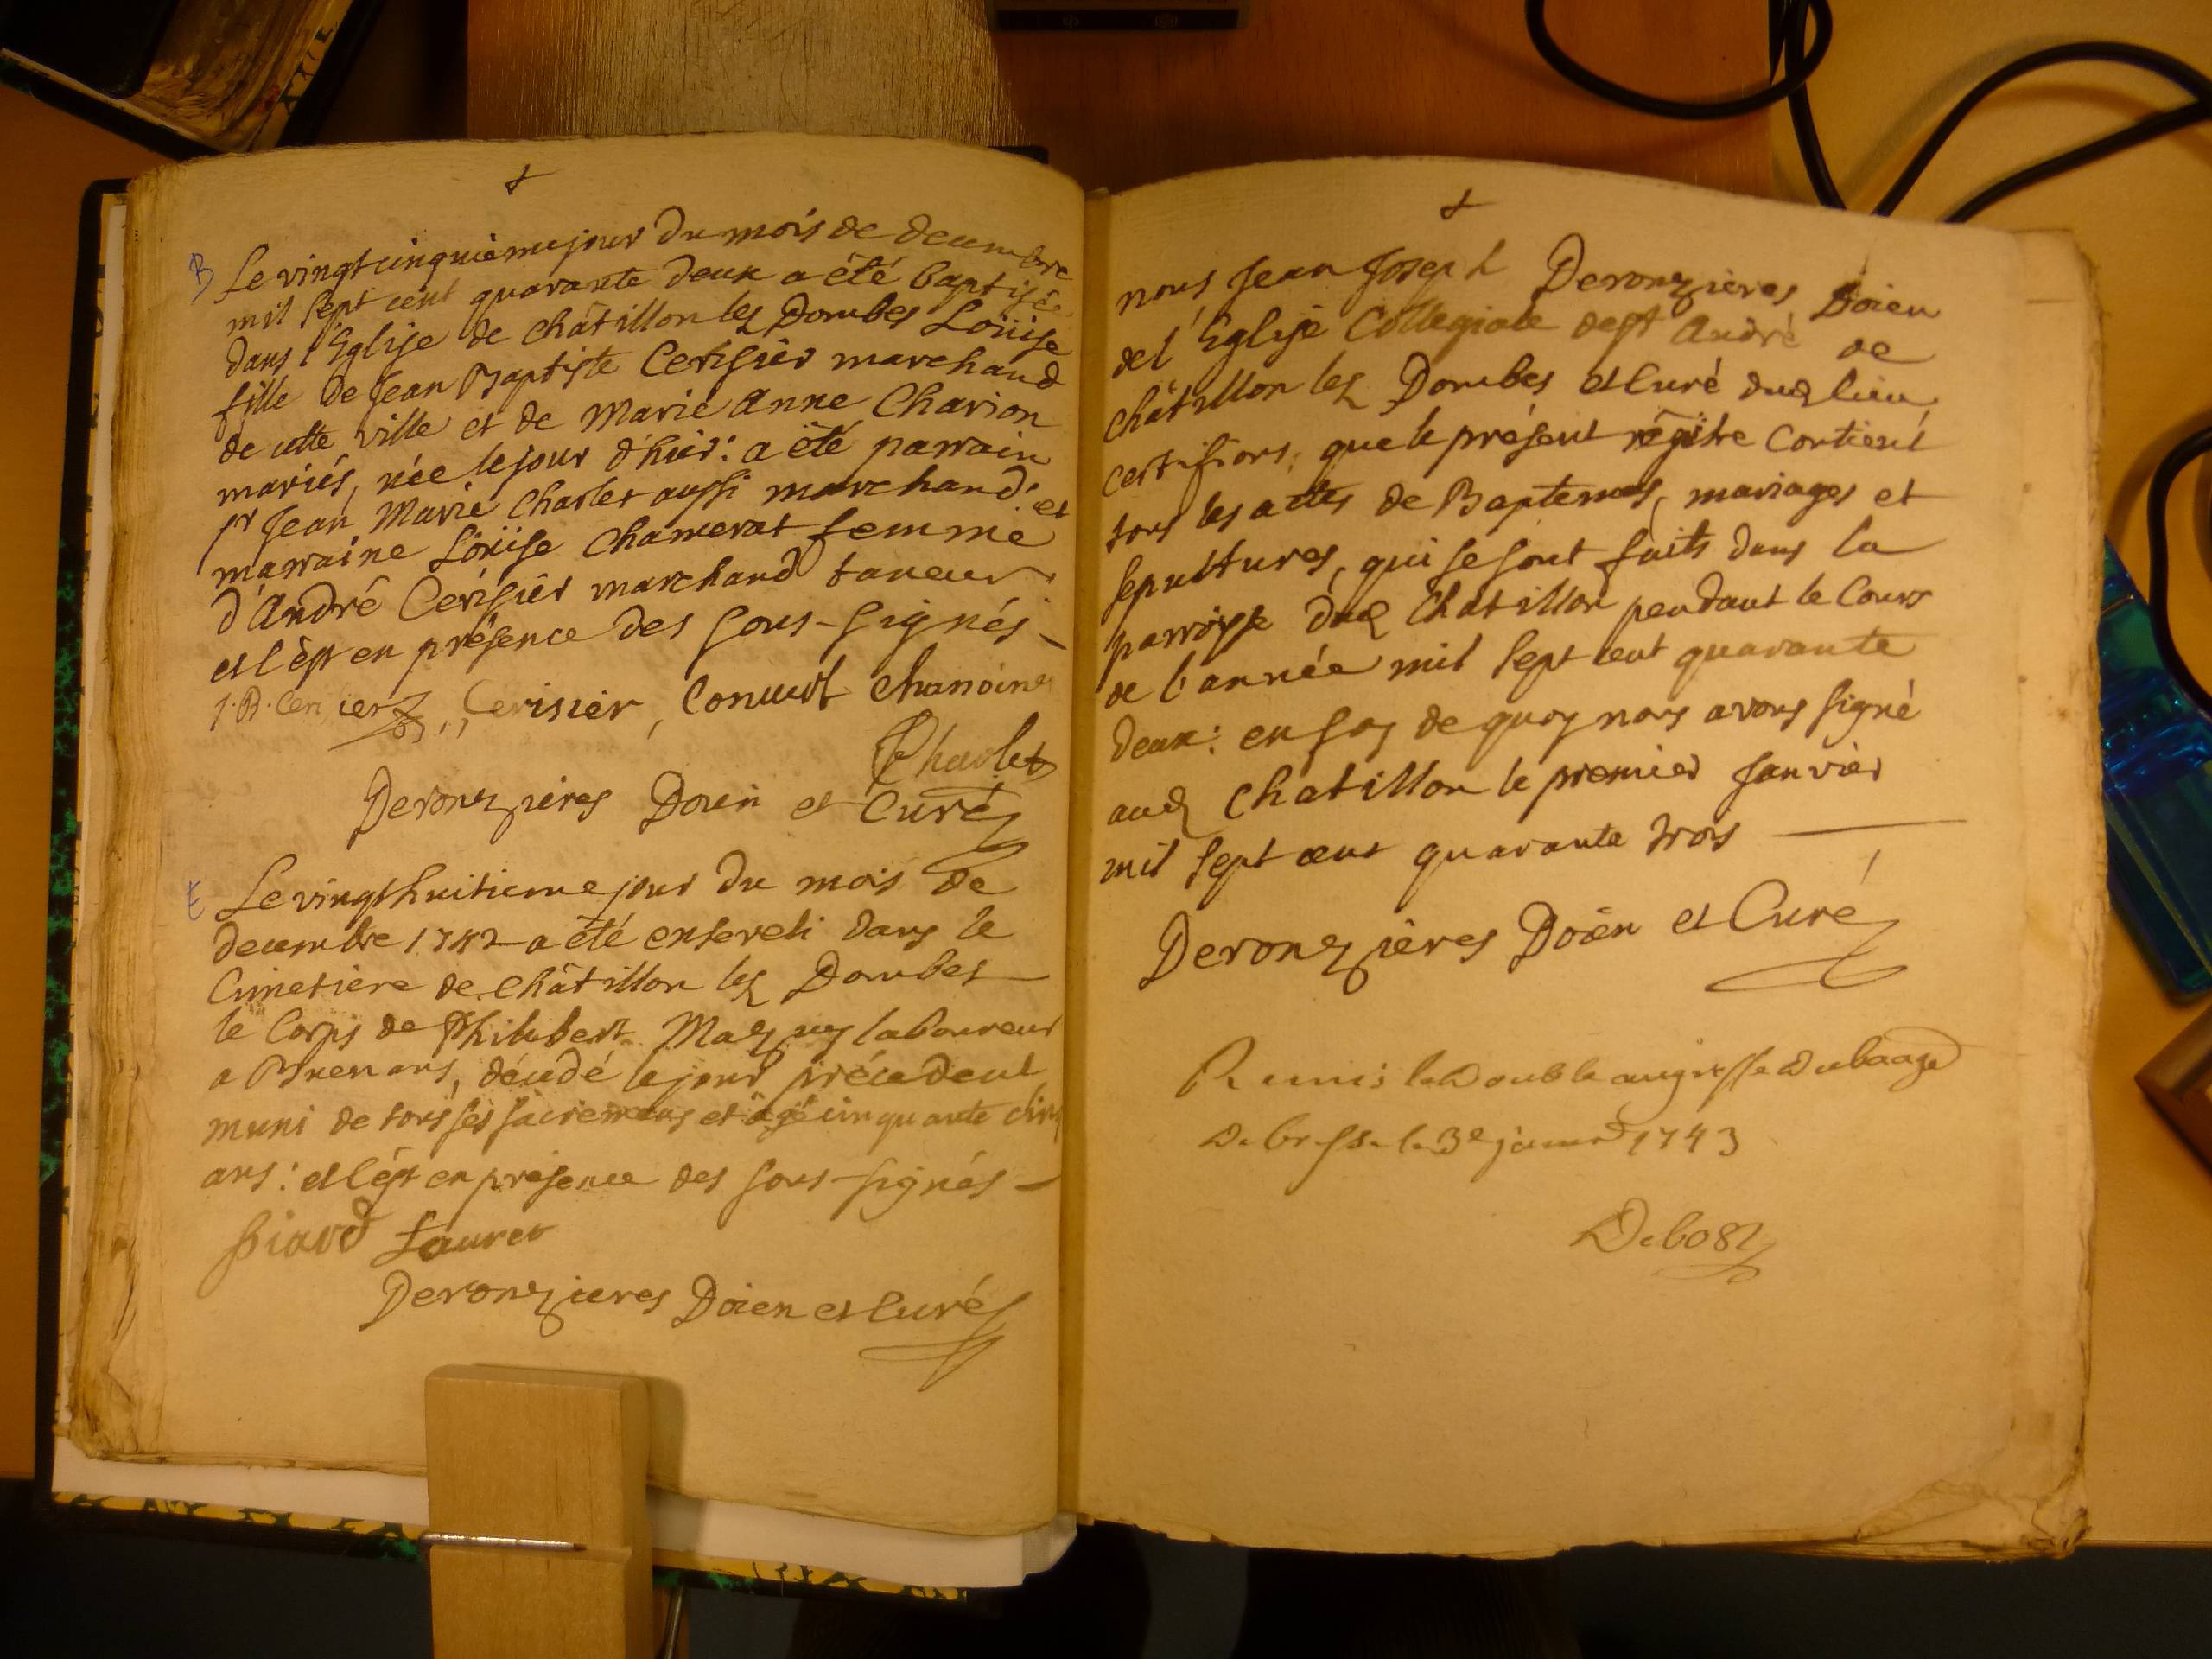 B Le vingt cinquième jour du mois de decembre
mil sept cent quarante deux a été baptisée
dans l'Eglise de châtillon les Dombes Loüise
fille de Jean Baptiste Cerisier marchand
de cette ville et de Marie Anne Charion
mariés, née le jour d'hier: a été parrain
sr Jean Marie Charles aussi marchand: et
marraine Loüise Chamerat femme
d'André Cerisier marchand taneur
et l'ept en présence des sous-signés
J. B. Cerisier, Cerisier, Conuert chanoine
Charles
Deronzières Doien et Curé
E Le vingt huitieme jour du mois de
decembre 1742 a été enseveli dans le
Cimetiere de châtillon les Dombes
le Corps de Philibert Mazuy laboureur
a Bruenans, décédé le jour précedent
muni de tous ses sacremens et agé cinquante cinq
ans: et l'ept en présence des sous-signés
Siard Lauret
Deronzieres Doien et Curé
nous Jean Joseph Deronzières Doien
de l'Eglise Collegiale de st André de
châtillon les Dombes et Curé dud lieu
certifions, que le présent régître Contient
tous les actes de Baptemes, mariages et
sepultures, qui se sont faits dans la
parroisse dud Chatillon pendant le Cours
de l'année mil sept cent quarante
deux: en foy de quoy nous avons signé
aud Chatillon le premier Janvier
mil sept cent quarante trois
Deronzières Doien et Curé
Remis le Double au greffe du baage
De bresse le 3e janvr 1743
Debost